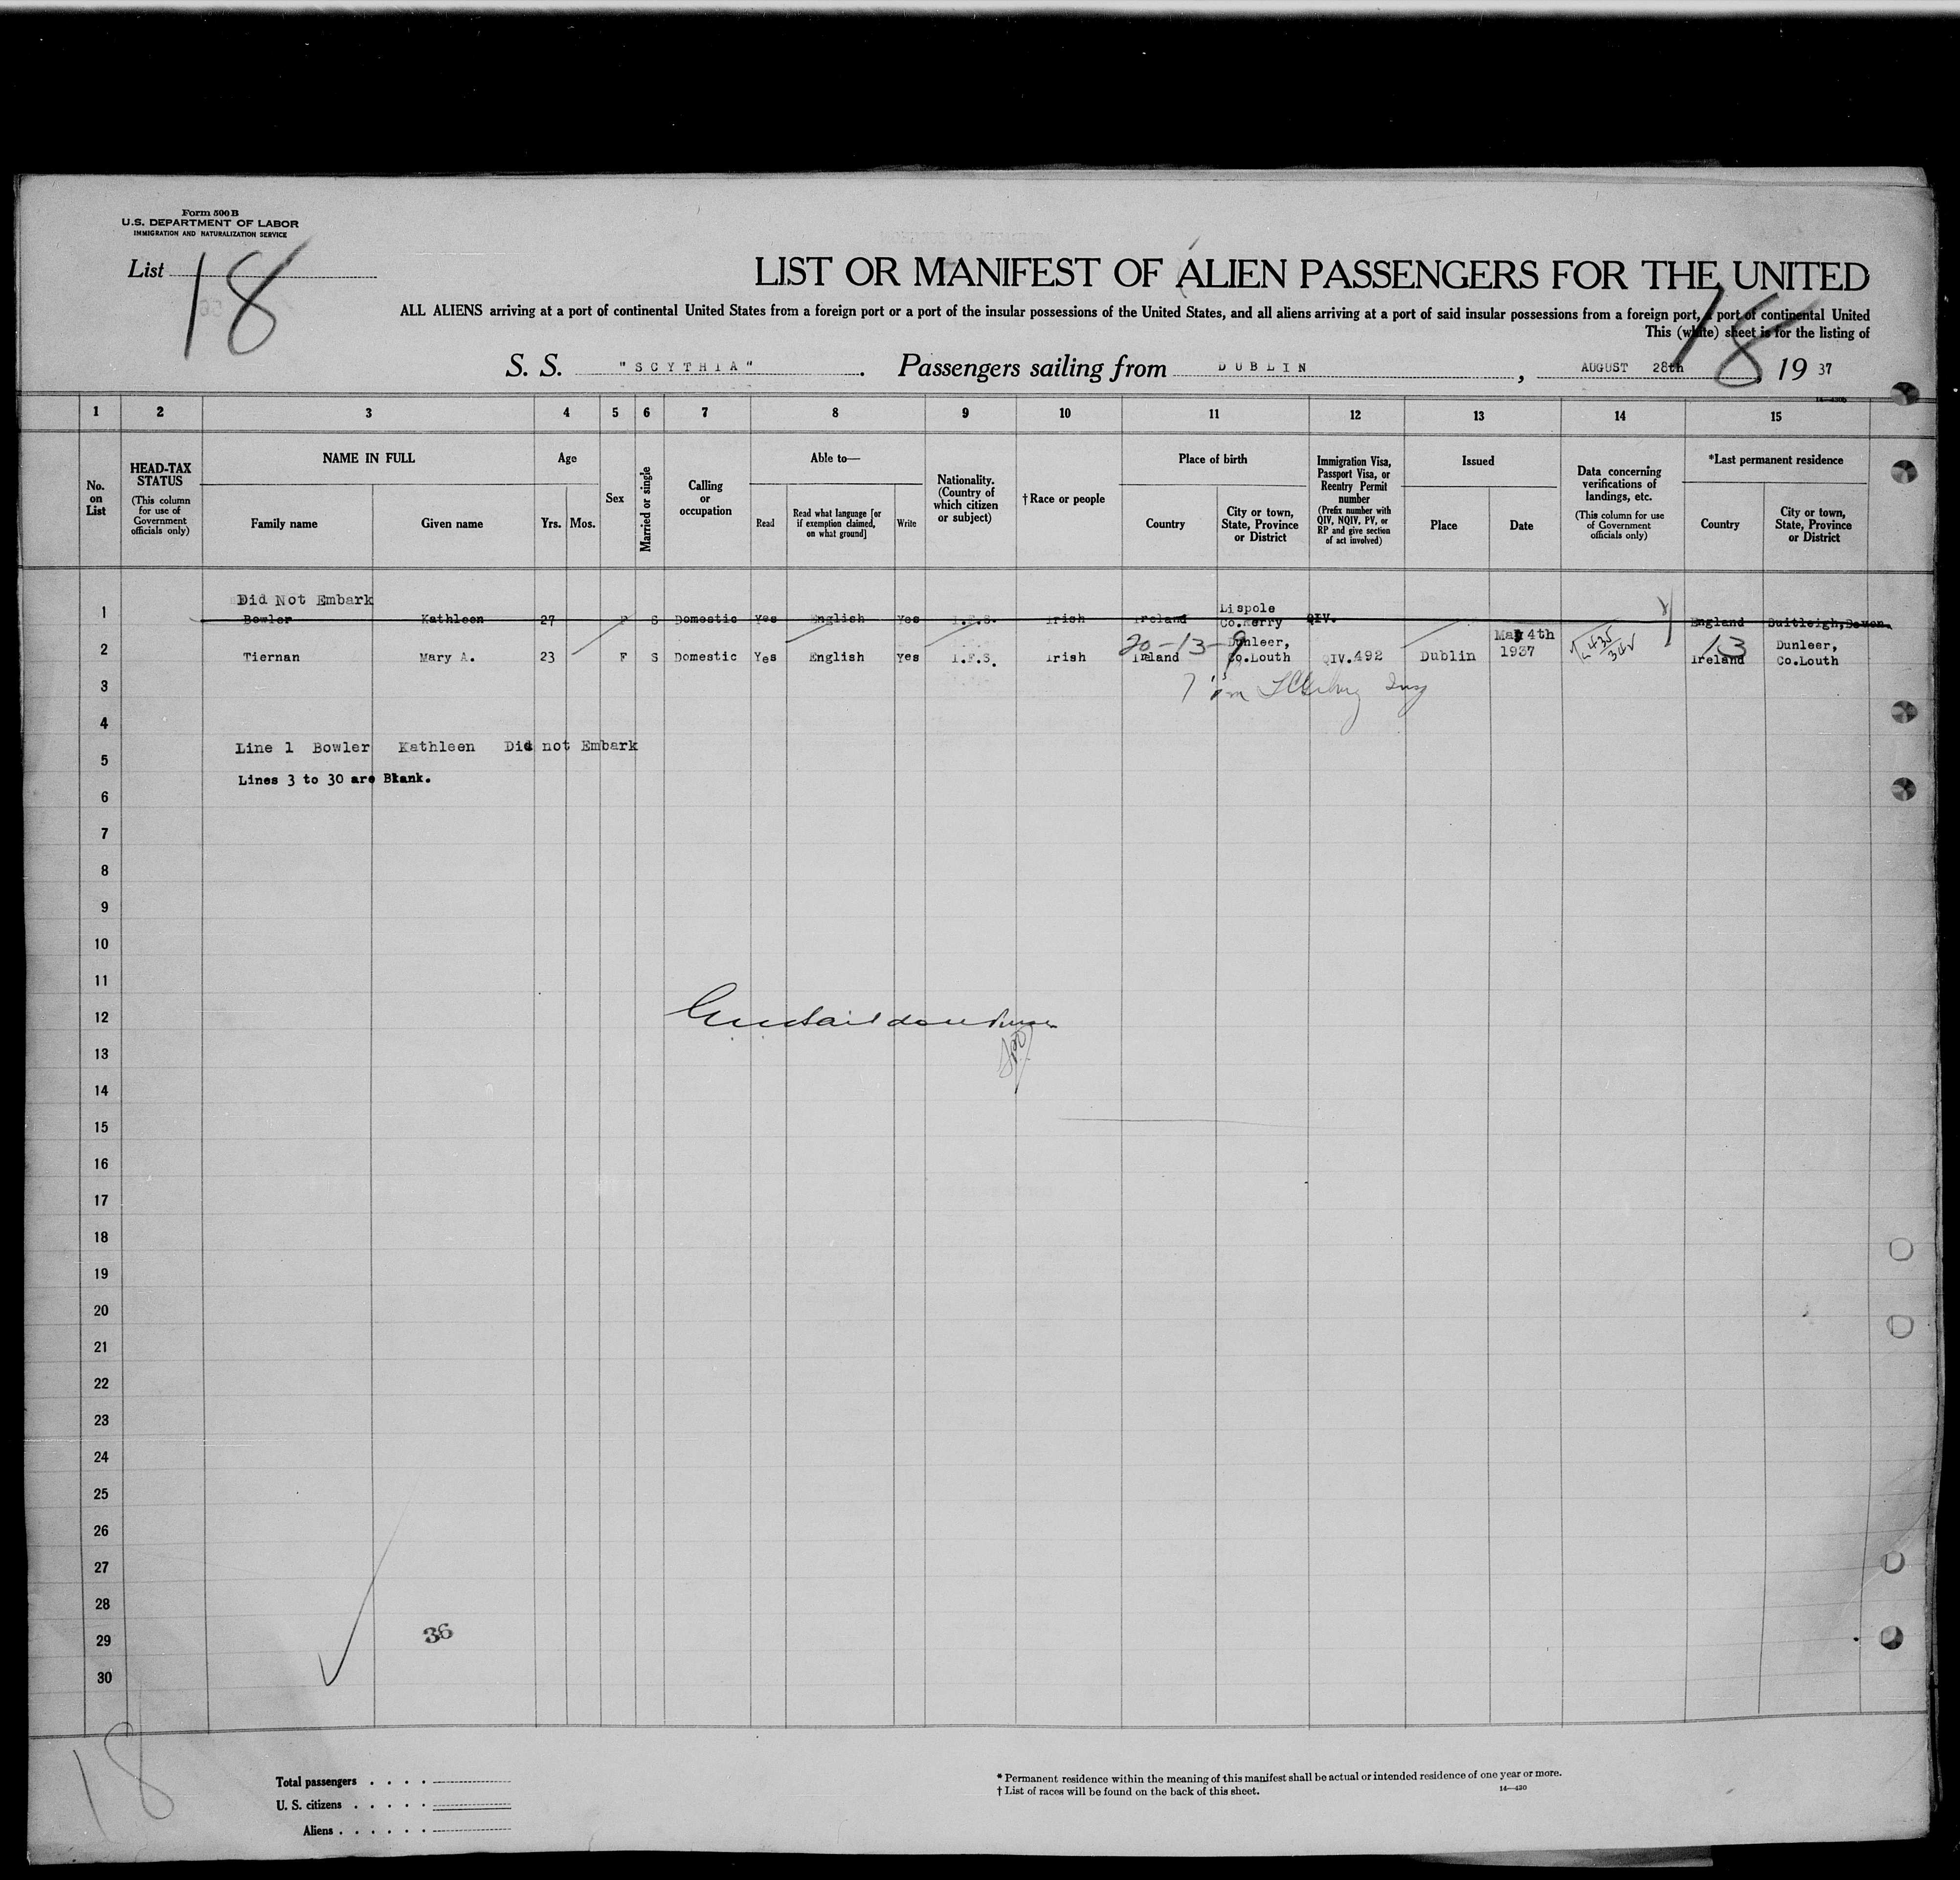 Form 500 B
U.S. DEPARTMENT OF LABOR
IMMIGRATION AND NATURALIZATION SERVICE
List 18
LIST OR MANIFEST OF ALIEN PASSENGERS FOR THE UNITED
18
ALL ALIENS arriving at a port of continental United States from a foreign port or a port of the insular possessions of the United States, and all aliens arriving at a port of said insular possessions from a foreign port, a port of continental United
This (white) sheet is for the listing of
S. S. "SCYTHIA". Passengers sailing from DUBLIN, AUGUST 28th, 19 37
1 2 3 4 5 6 7 8 9 10 11 12 13 14 15
No. on List
HEAD-TAX STATUS
(This column for use of Government officials only)
NAME IN FULL
Family name Given name
Age
Yrs. Mos.
Sex
Married or single
Calling or occupation
Able to—
Read
Read what language [or if exemption claimed, on what ground]
Write
Nationality. (Country of which citizen or subject)
†Race or people
Place of birth
Country
City or town, State, Province or District
Immigration Visa, Passport Visa, or Reentry Permit number
(Prefix number with QIV, NQIV, PV, or RP and give section of act involved)
Issued
Place Date
Data concerning verifications of landings, etc.
(This column for use of Government officials only)
*Last permanent residence
Country
City or town, State, Province or District
Did Not Embark
1 Bowler Kathleen 27 F S Domestic Yes English Yes I.F.S. Irish Ireland Lispole Co.Kerry QIV. England Devon.
20-13-9
13
2 Tiernan Mary A. 23 F S Domestic Yes English Yes I.F.S. Irish Ireland Dunleer, Co.Louth QIV.492 Dublin May 4th 1937 Ireland Dunleer, Co.Louth
3
4
Line 1 Bowler Kathleen Did not Embark
5
Lines 3 to 30 are Blank.
6
7
8
9
10
11
12
13
14
15
16
17
18
19
20
21
22
23
24
25
26
27
28
29
36
30
18
Total passengers . . . .
U. S. citizens . . . . .
Aliens . . . . . .
* Permanent residence within the meaning of this manifest shall be actual or intended residence of one year or more.
† List of races will be found on the back of this sheet.
14—430